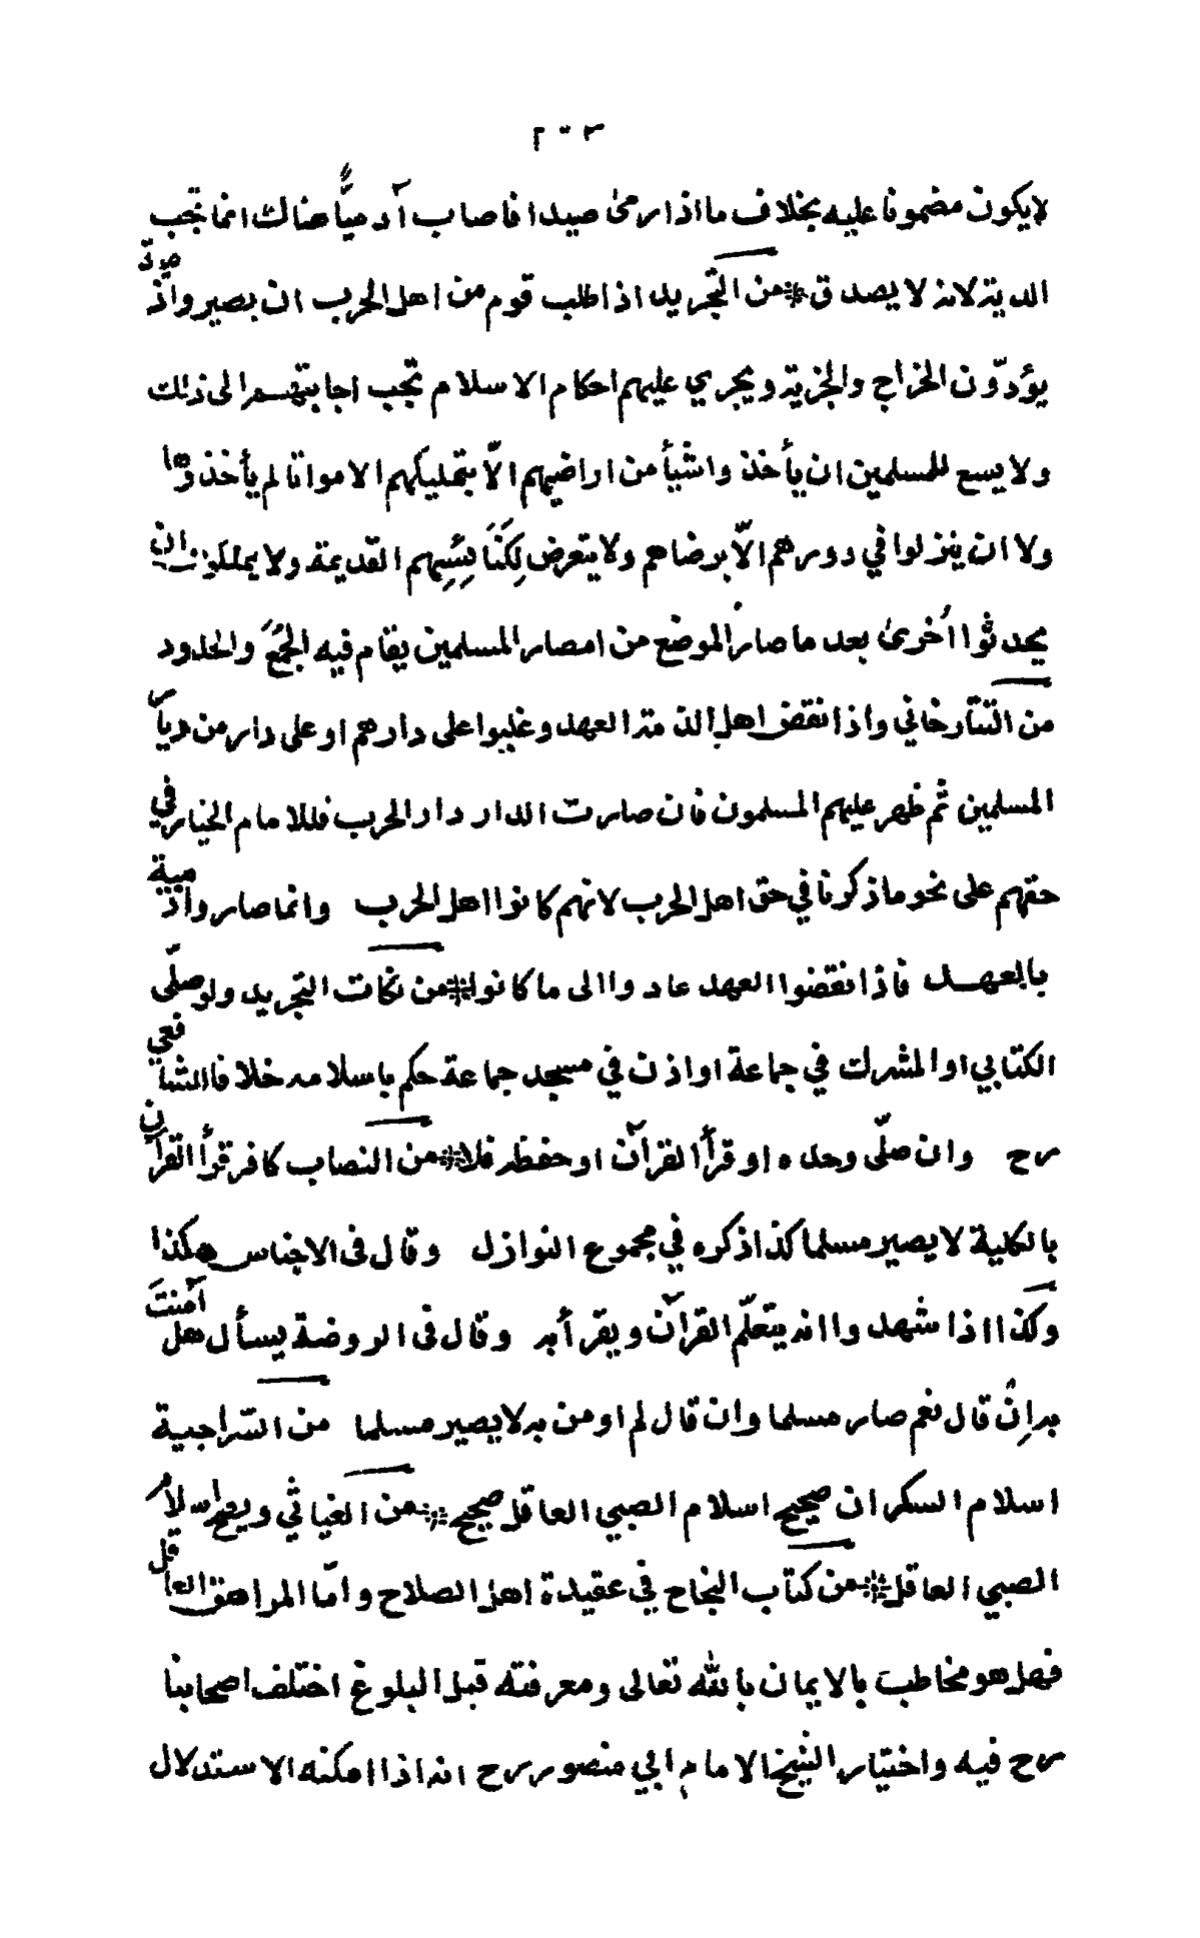 ٢٠٣
لايكون مضمونا عليه بخلاف ما اذا رمى صيدا فاصاب آدميًّا هناك انما تجب
الدية لانه لا يصدق ※ من التجريد اذا طلب قوم من اهل الحرب ان يصيروا ذمّة
يؤدّون الخراج والجزية ويجري عليهم احكام الاسلام تجب اجابتهم الى ذلك
ولا يسع للمسلمين ان يأخذوا شيأ من اراضيهم الّا بتمليكهم الا مواتا لم يأخذوها
ولا ان ينزلوا في دورهم الّا برضاهم ولا يتعرض لِكَنَائِسِهم القديمة ولا يملكون ان
يحدثوا اُخرى بعد ما صار الموضع من امصار المسلمين يقام فيه الجُمَعُ والحدود
من التتارخاني واذا نقض اهل الذمة العهد وغلبوا على دارهم او على دار من ديار
المسلمين ثم ظهر عليهم المسلمون فان صارت الدار دار الحرب فللامام الخيار في
حقهم على نحو ما ذكرنا في حق اهل الحرب لانهم كانوا اهل الحرب وانما صاروا ذمية
بالعهد فاذا نقضوا العهد عادوا الى ما كانوا ※ من نكات التجريد ولو صلّى
الكتابي او المشرك في جماعة او اذن في مسجد جماعة حكم باسلامه خلافا للشافعي
رح وان صلّى وحده او قرأ القرآن او حفظه فلا ※ من النصاب كافر قرأ القرآن
بالكلية لا يصير مسلما كذا ذكره في مجموع النوازل وقال فى الاجناس هكذا
وكذا اذا شهدوا انه يتعلّم القرآن ويقرأ به وقال فى الروضة يسأل هل آمنتَ
به اِنْ قال نعم صار مسلما وان قال لم اومن به لا يصير مسلما من السّراجية
اسلام السكران صحيح اسلام الصبي العاقل صحيح ※ من الغياثي ويصح اسلام
الصبي العاقل ※ من كتاب النجاح في عقيدة اهل الصلاح وامّا المراهق العاقل
فهل هو مخاطب بالايمان بالله تعالى ومعرفته قبل البلوغ اختلف اصحابنا
رح فيه واختيار الشيخ الامام ابي منصور رح انه اذا امكنه الاستدلال